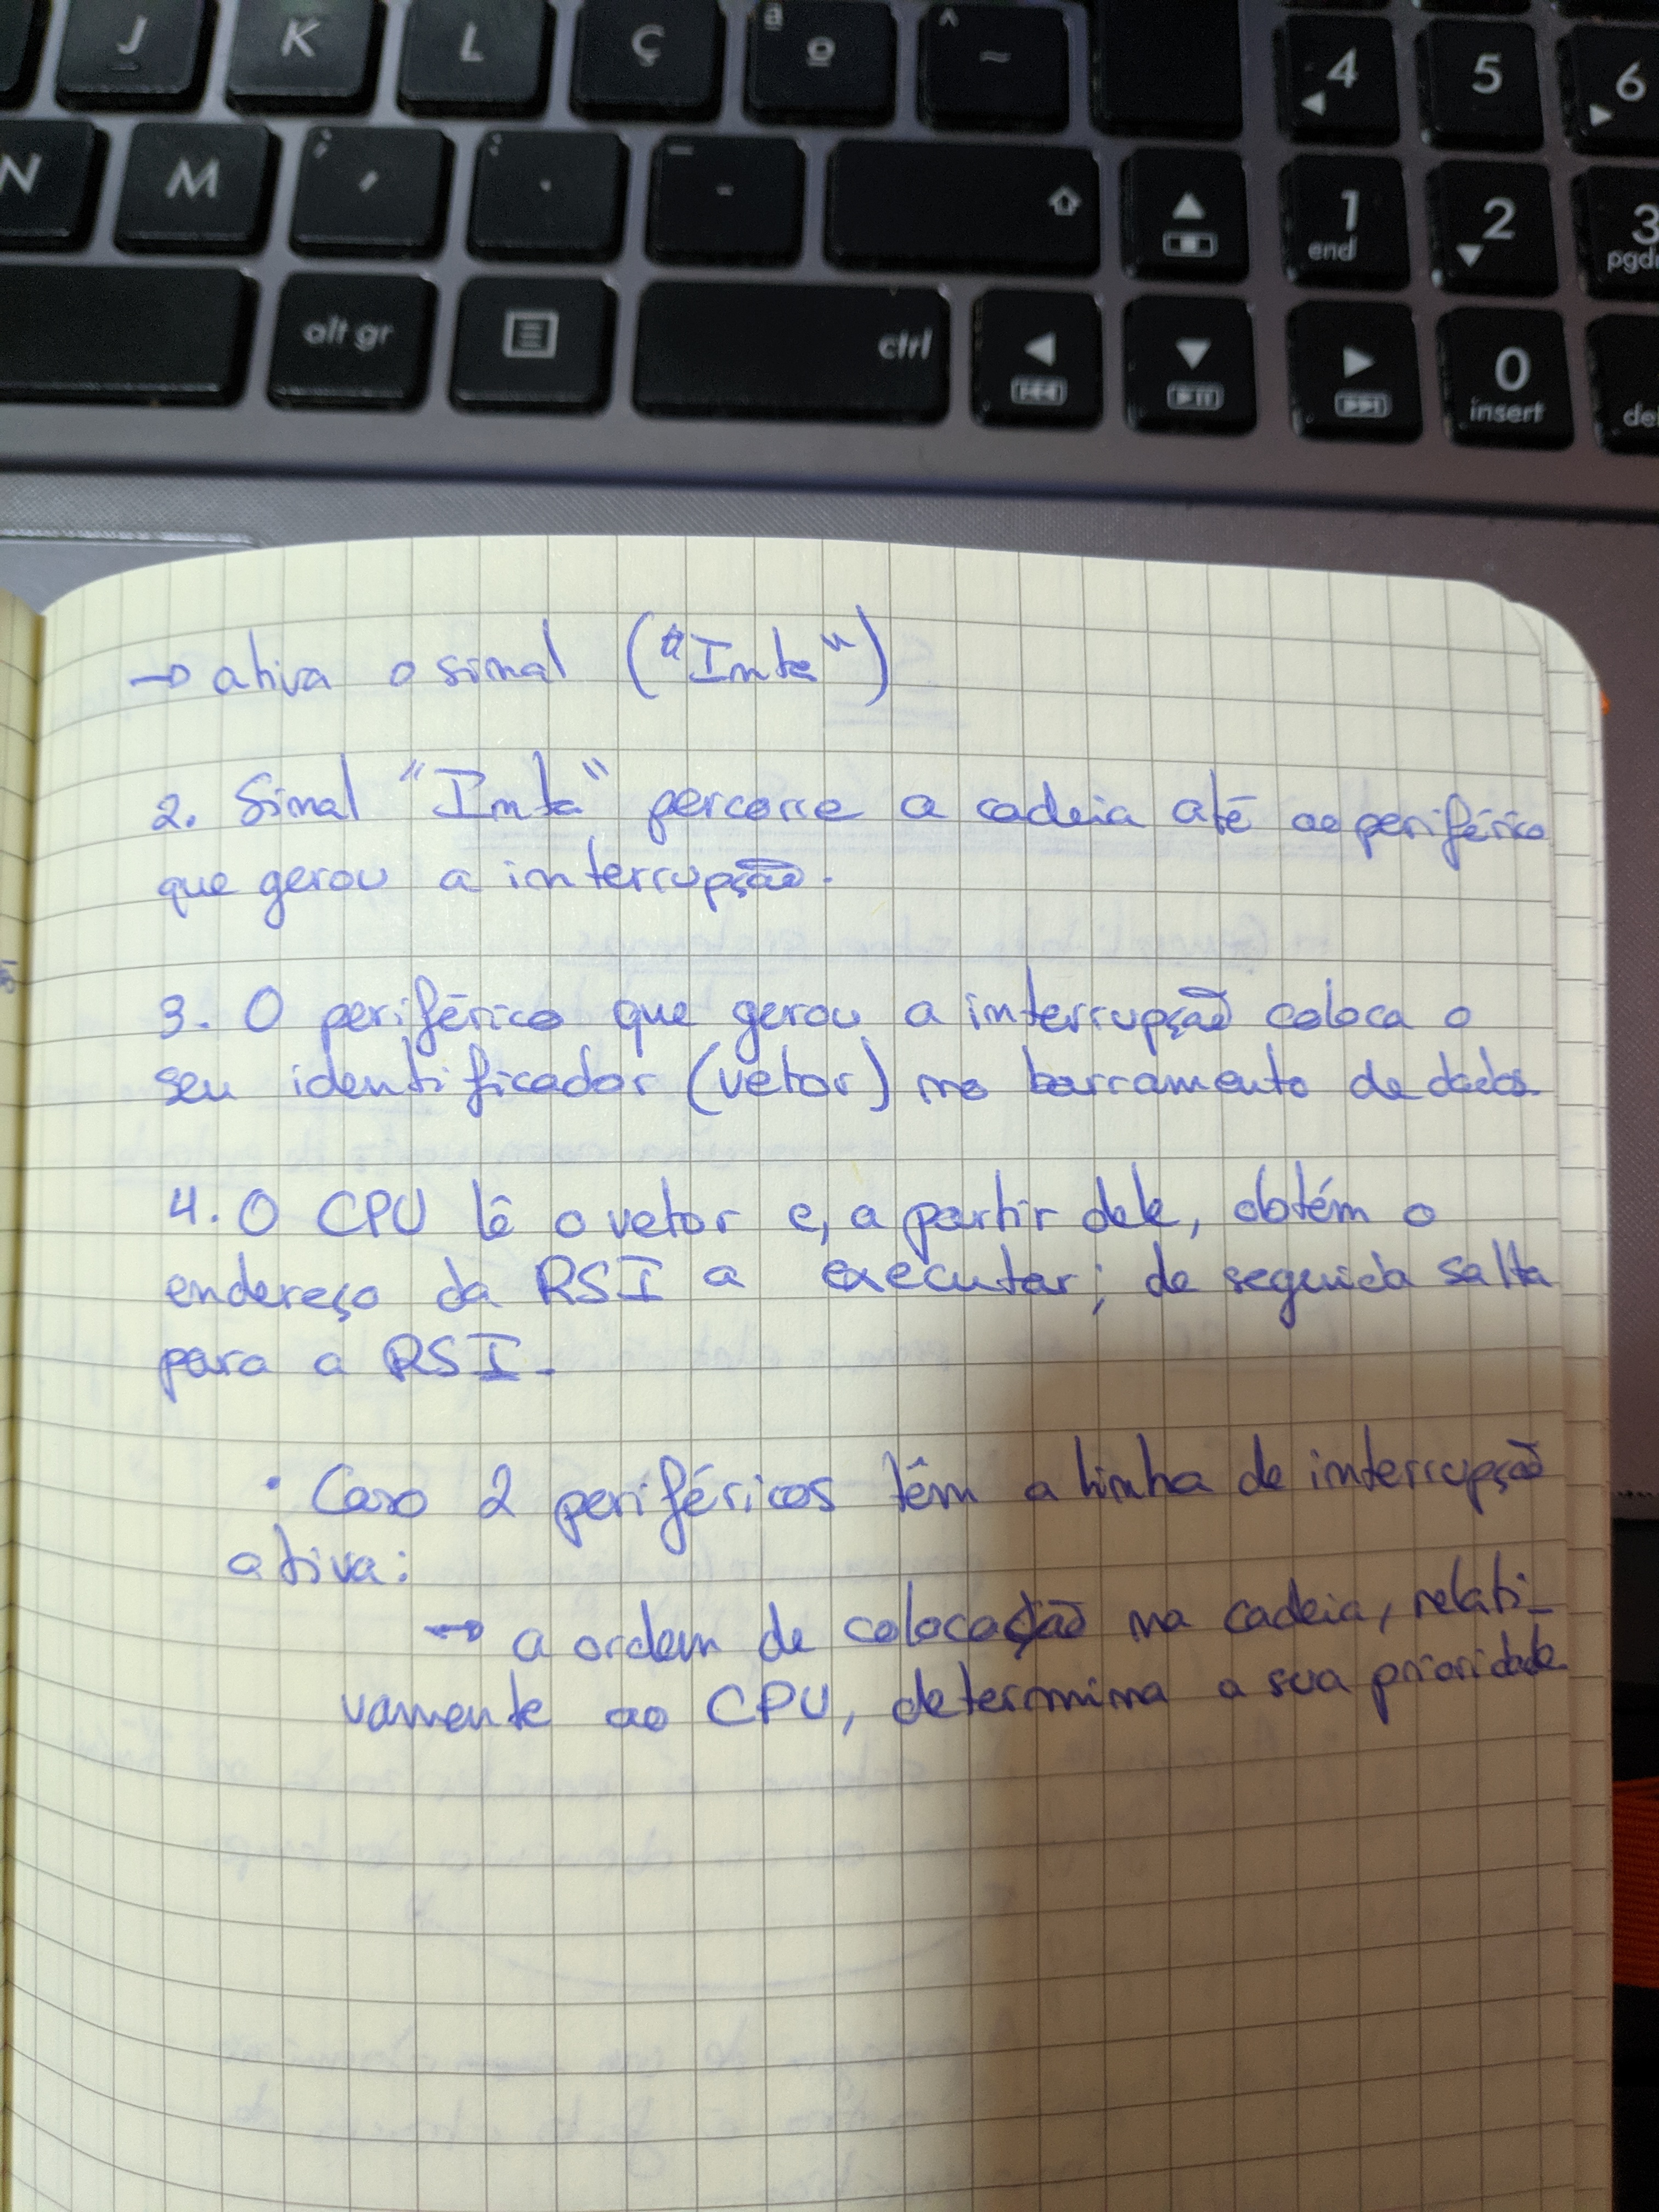 J K L Ç ª º ^ ~ 4 5 6
N M ; , : . _ - 1 end 2 3
alt gr ctrl 0 insert
→ ativa o sinal ("Inta")
2. Sinal "Inta" percorre a cadeia até ao periférico
que gerou a interrupção.
3. O periférico que gerou a interrupção coloca o
seu identificador (vetor) no barramento de dados.
4. O CPU lê o vetor e, a partir dele, obtém o
endereço da RSI a executar; de seguida salta
para a RSI.
• Caso 2 periféricos têm a linha de interrupção
ativa:
→ a ordem de colocação na cadeia, relati-
vamente ao CPU, determina a sua prioridade